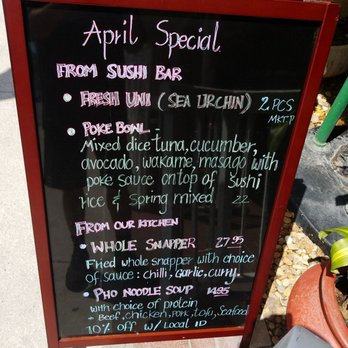 April Special.
FROM SUSHI BAR
FRESH UNI (SEA URCHIN) 2 PCS
MKT.P
POKE BOWL -
Mixed dice tuna, cucumber,
avocado, wakame, masago with
poke sauce on top of Sushi
rice & Spring mixed 22
FROM OUR KITCHEN
WHOLE SNAPPER 27.95
Fried whole snapper with choice
of sauce: chilli, garlic, curry.
PHO NOODLE SOUP 14.95
with choice of protein
- Beef, chicken, Pork, Tofu, Seafood
10% off w/ Local ID